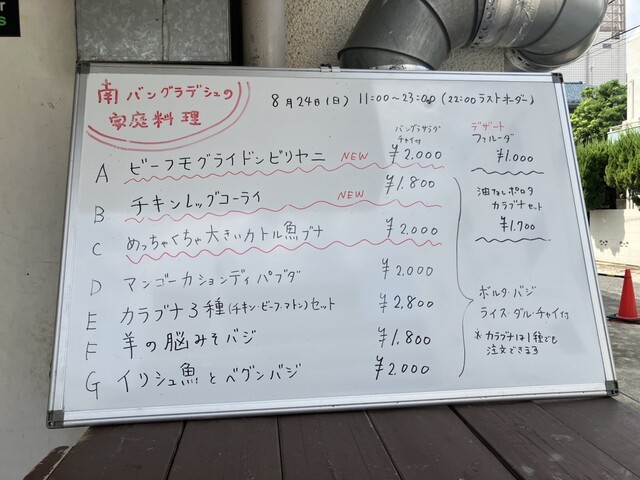 南バングラデシュの
家庭料理
8月24日(日) 11:00～23:00 (22:00 ラストオーダー)
バングラサラダ
チャイ付
A ビーフモグライドンビリヤニ NEW ¥2.000
B チキンレッグコーライ NEW ¥1.800
C めっちゃくちゃ大きいカトル魚ブナ ¥2.000
D マンゴーカションディパブダ ¥2.000
E カラブナ3種(チキン・ビーフ・マトン)セット ¥2.800
F 羊の脳みそバジ ¥1.800
G イリシュ魚とベグンバジ ¥2.000
デザート
ファルーダ
¥1.000
油なしポロタ
カラブナセット
¥1.700
ボルタ・バジ
ライス・ダル・チャイ付
※カラブナは1種でも
注文できます